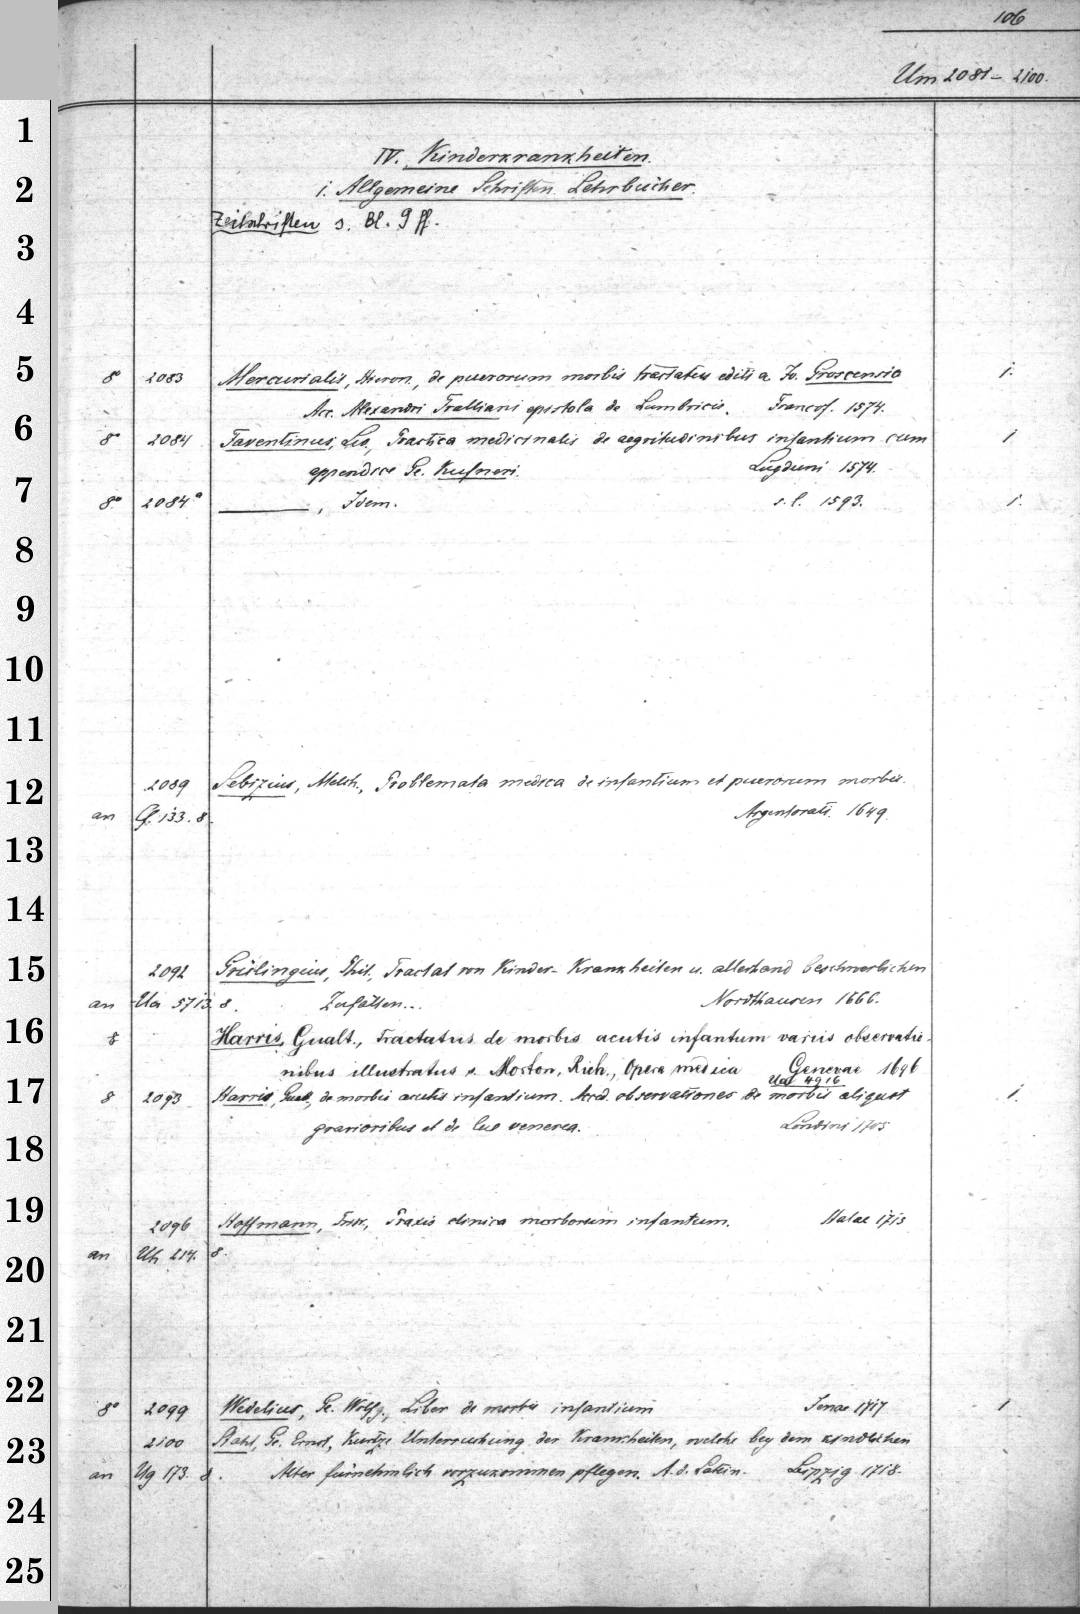 106
Um 2081 – 2100.
1
IV. Kinderkrankheiten.
2
1. Allgemeine Schriften. Lehrbücher.
Zeitschriften s. Bl. 9 ff.
3
4
5
8° 2083 Mercurialis, Hieron., de puerorum morbis tractatus editi a Jo. Groscensio 1.
Acc. Alexandri Tralliani epistola de Lumbricis. Francof. 1574.
6
8° 2084 Faventinus, Leo, Practica medicinalis de aegritudinibus infantium cum 1
appendice Ge. Kufneri. Lugduni 1574.
7
8° 2084a ———, Idem. s. l. 1593. 1.
8
9
10
11
12
2089 Sebizius, Melch., Problemata medica de infantium et puerorum morbis.
an 133. 8. Argentorati. 1649.
13
14
15
2092 Grülingius, Phil., Tractat von Kinder-Krankheiten u. allerhand beschwerlichen
an Ua 5713. 8. Zufällen... Nordhausen 1666.
16
8 Harris, Gualt., Tractatus de morbis acutis infantum variis observatio-
nibus illustratus s. Morton, Rich., Opera medica Genevae 1696
Ual 4916
17
8 2093 Harris, Gualt., de morbis acutis infantium. Acced. observationes de morbis aliquot 1.
gravioribus et de lue venerea. Londini 1705
18
19
2096 Hoffmann, Frdr., Praxis clinica morborum infantum. Halae 1715
an Uh 214. 8.
20
21
22
8° 2099 Wedelius, Ge. Wolfg., Liber de morbis infantium Jenae 1717 1
23
2100 Stahl, Ge. Ernst, Kurtze Untersuchung der Krankheiten, welche bey dem kindlichen
an Ug 173. 8. Alter fürnehmlich vorzukommen pflegen. A. d. Latein. Leipzig 1718.
24
25